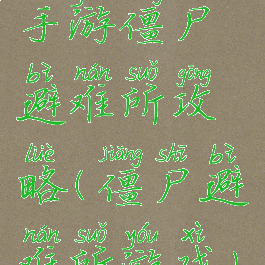 手游僵尸
bì nán suǒ gōng
避难所攻
lüè Jiāng shī bì
略(僵尸避
nán suǒ yóu xì
难所游戏)